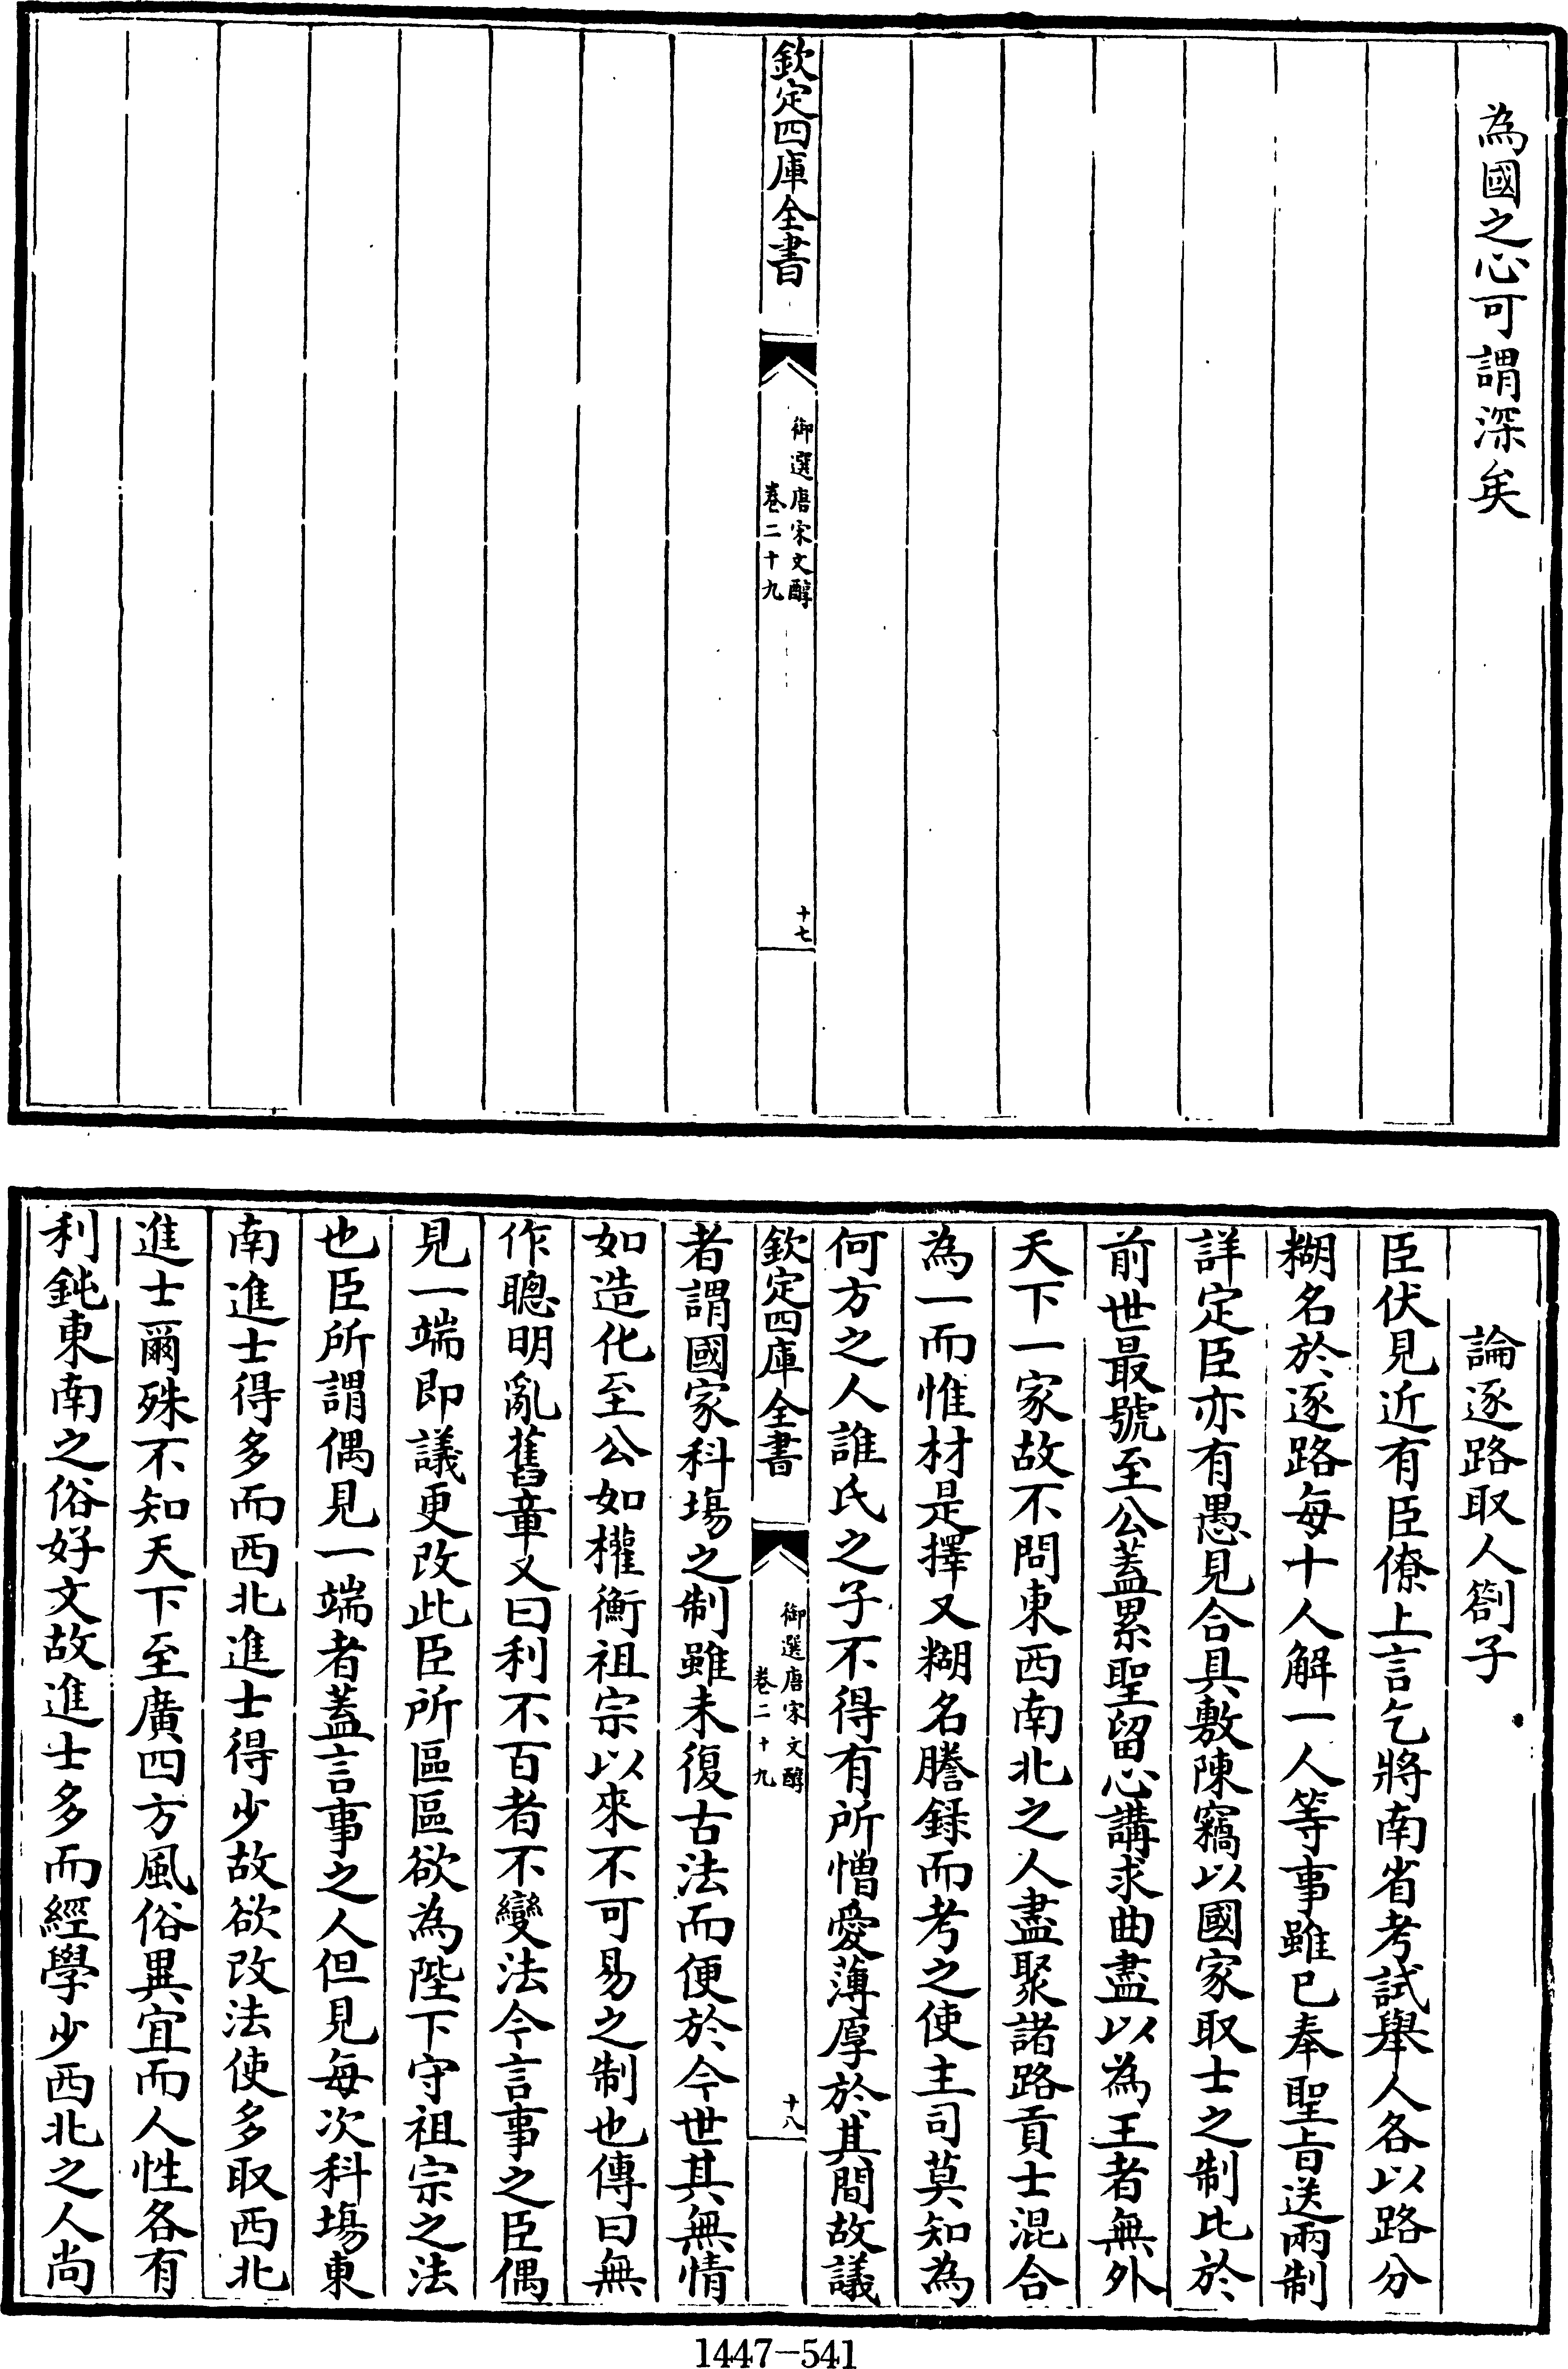 為國之心可謂深矣
欽定四庫全書
御選唐宋文醇
卷二十九
十七
論逐路取人劄子
臣伏見近有臣僚上言乞將南省考試舉人各以路分
糊名於逐路每十人解一人等事雖已奉聖旨送兩制
詳定臣亦有愚見合具敷陳竊以國家取士之制比於
前世最號至公蓋累聖留心講求曲盡以為王者無外
天下一家故不問東西南北之人盡聚諸路貢士混合
為一而惟材是擇又糊名謄録而考之使主司莫知為
何方之人誰氏之子不得有所憎愛薄厚於其間故議
欽定四庫全書
御選唐宋文醇
卷二十九
十八
者謂國家科場之制雖未復古法而便於今世其無情
如造化至公如權衡祖宗以來不可易之制也傳曰無
作聰明亂舊章又曰利不百者不變法今言事之臣偶
見一端即議更改此臣所區區欲為陛下守祖宗之法
也臣所謂偶見一端者蓋言事之人但見每次科場東
南進士得多而西北進士得少故欲改法使多取西北
進士爾殊不知天下至廣四方風俗異宜而人性各有
利鈍東南之俗好文故進士多而經學少西北之人尚
1447-541